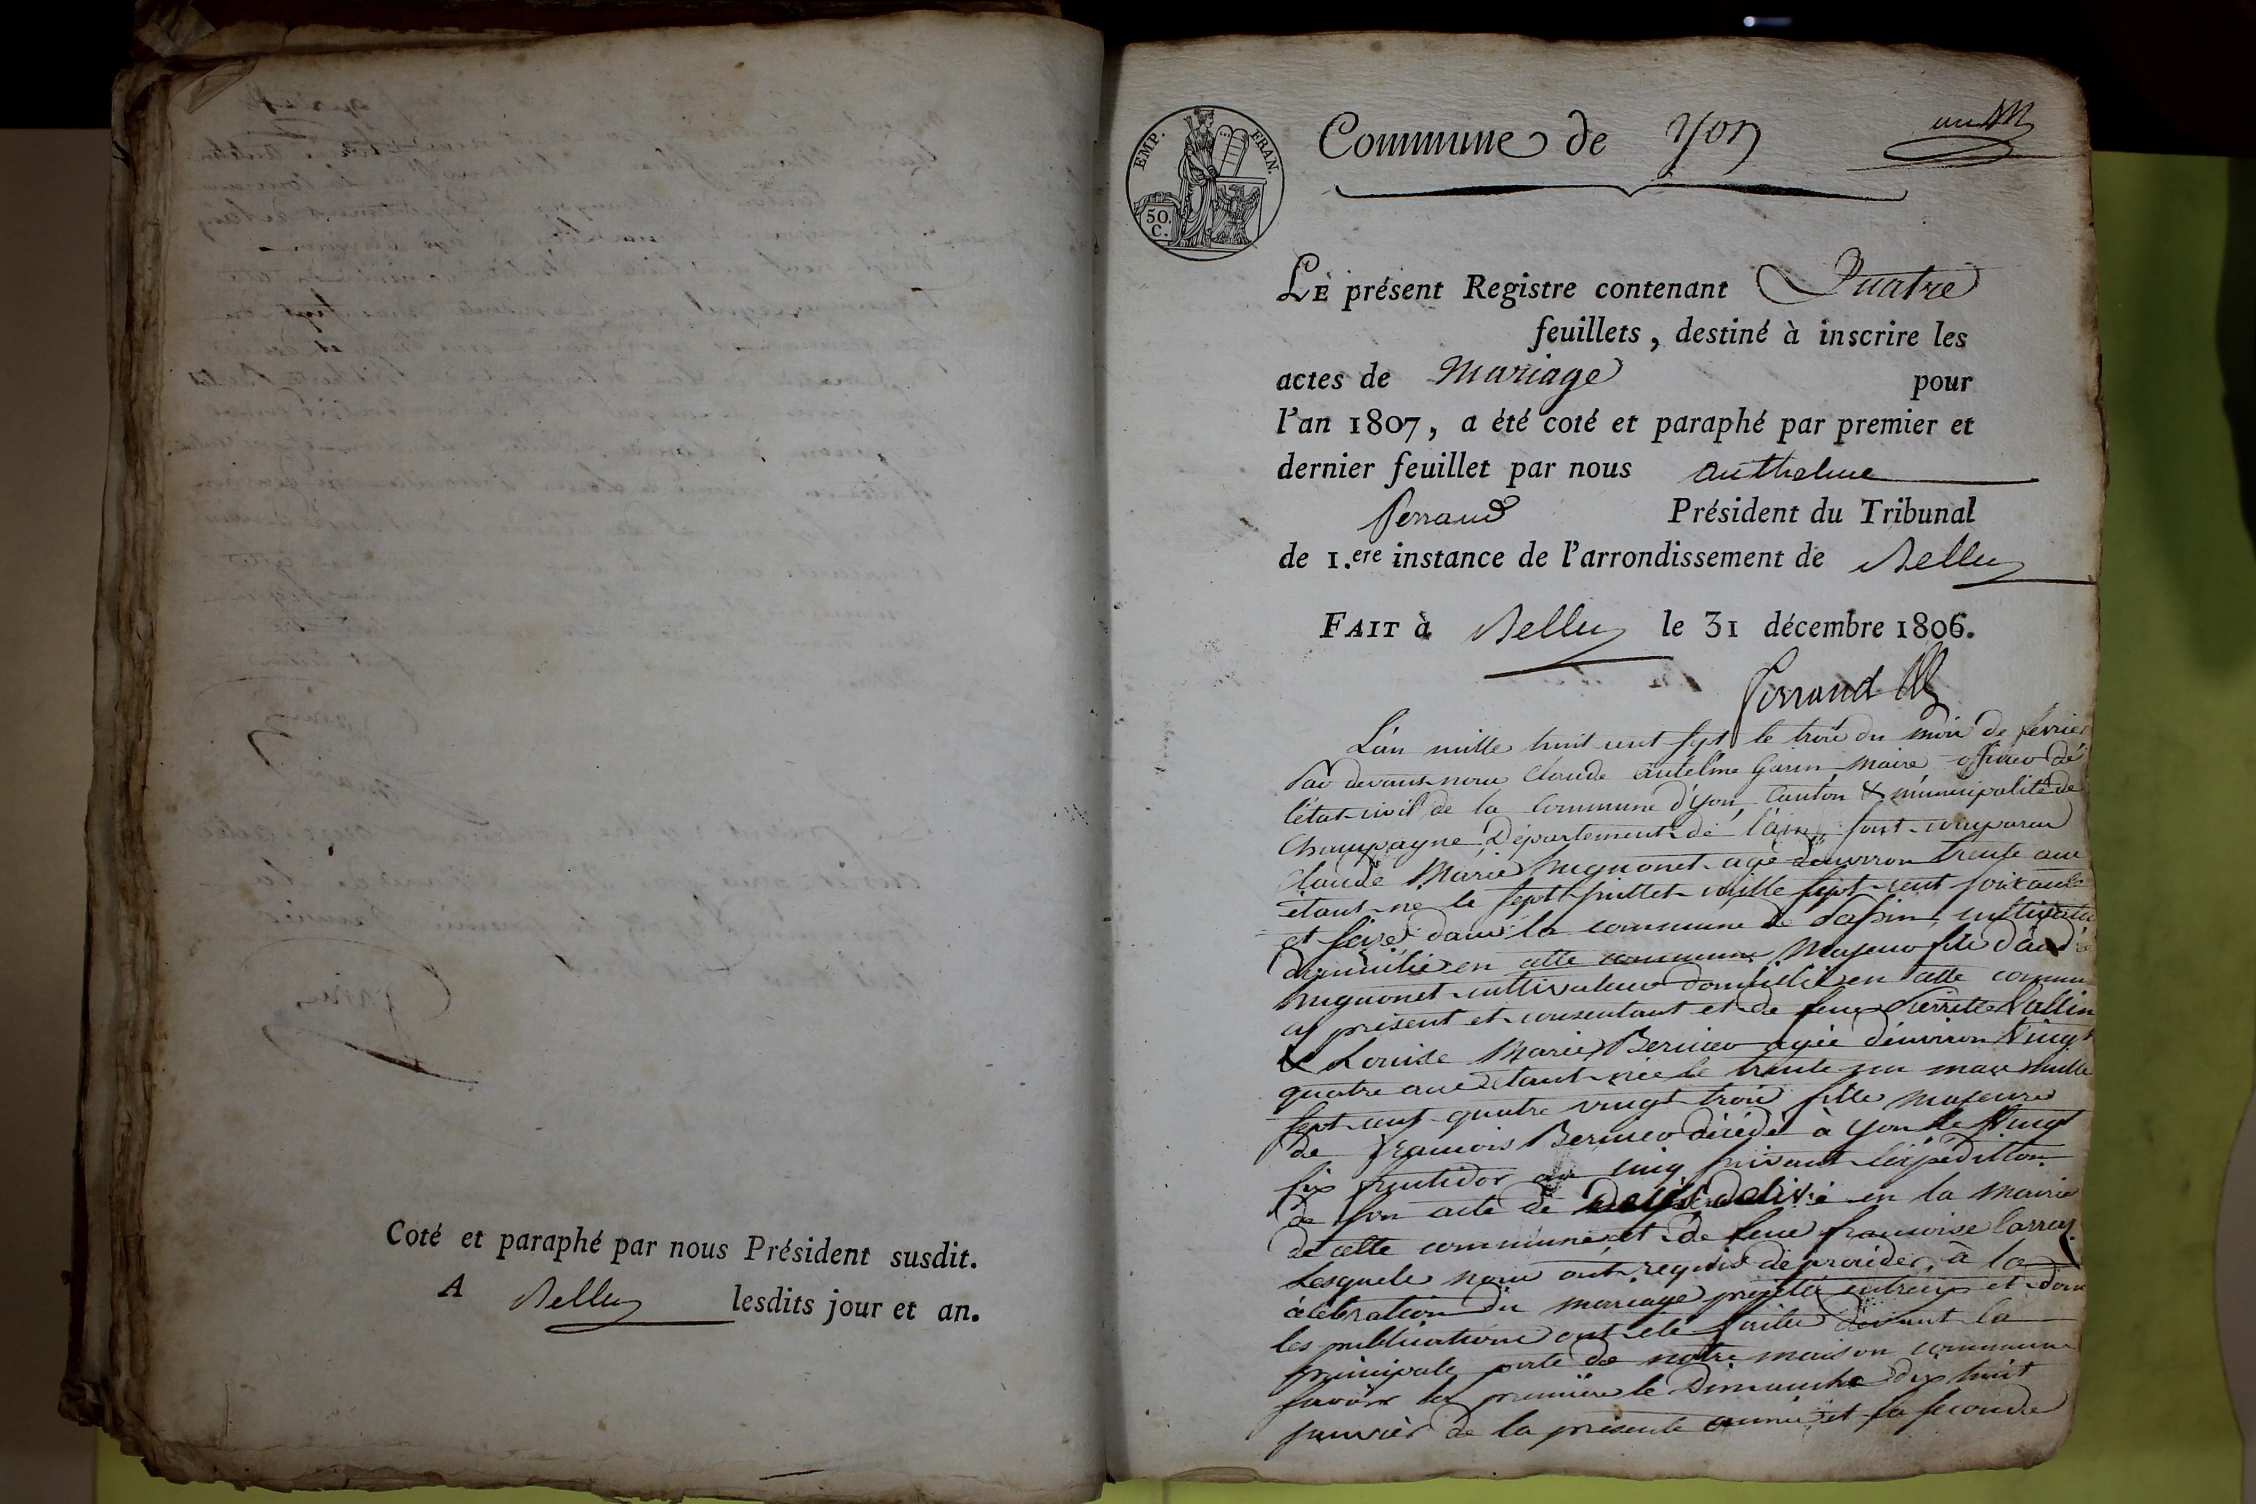 Coté et paraphé par nous Président susdit.
A Belley lesdits jour et an.
EMP. FRAN.
50. C.
Commune de Yon
un
LE présent Registre contenant Quatre
feuillets, destiné à inscrire les
actes de Mariage pour
l'an 1807, a été coté et paraphé par premier et
dernier feuillet par nous anthelme
Perrand Président du Tribunal
de 1.ere instance de l'arrondissement de Belley
FAIT à Belley le 31 décembre 1806.
Perrand
L'an mille huit cent sept le trois du mois de fevrier
Par devant nous Claude Antelme Garin Maire officier de
l'état civil de la Commune d'yon, Canton & municipalité de
Champagne, Département de l'ain, sont comparu
Claude Marie hugonet agé d'environ trente ans
étant né le sept juillet mille sept cent soixante
et seize dans la commune de cultivateur
domicilié en cette commune Majeur fils d'andré
hugonet cultivateur domicilié en cette commune
cy présent et consentant et de feue Pierrette Vallin
& Louise Marie Bernier agée d'environ Vingt
quatre ans étant née le trente un mars mille
sept cent quatre vingt trois fille majeure
de françois Bernier décédé à yon le Vingt
six fructidor an cinq suivant l'expédition
de son acte de décès délivré en la Mairie
de cette commune, et de feue françoise
Lesquels nous ont requis de procéder, à la
célébration du mariage projetté entreux et dont
les publications ont été faites devant la
principale porte de notre maison commune
savoir la première le Dimanche dix huit
janvier de la présente année et la seconde